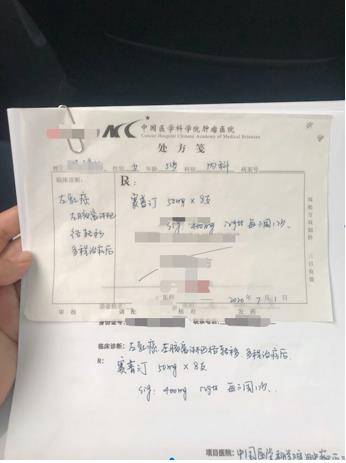 NCC 中国医学科学院肿瘤医院
Cancer Hospital Chinese Academy of Medical Sciences
处方笺
性别 女 年龄 内科 病案号
临床诊断:
R:
左乳癌
左腋窝淋巴
结转移
多程治疗后
赛普汀 50mg × 8支
sig: 400mg ivgtt 每三周1次
医师
2020 年 7 月 1 日
审核 调配 核对 发药
临床诊断: 左乳癌 左腋窝淋巴结转移 多程治疗后
R: 赛普汀 50mg × 8支
sig: 400mg ivgtt 每三周1次.
项目医院: 中国医学科学院肿瘤医院